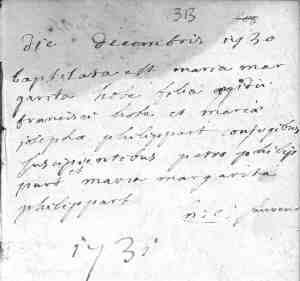 313
die decembris 1730
baptisata est maria mar
garita hote filia
francisci hote et maria
josepha philippart conjugibus
suscipientibus petro philip
part et maria margarita
philippart
1731